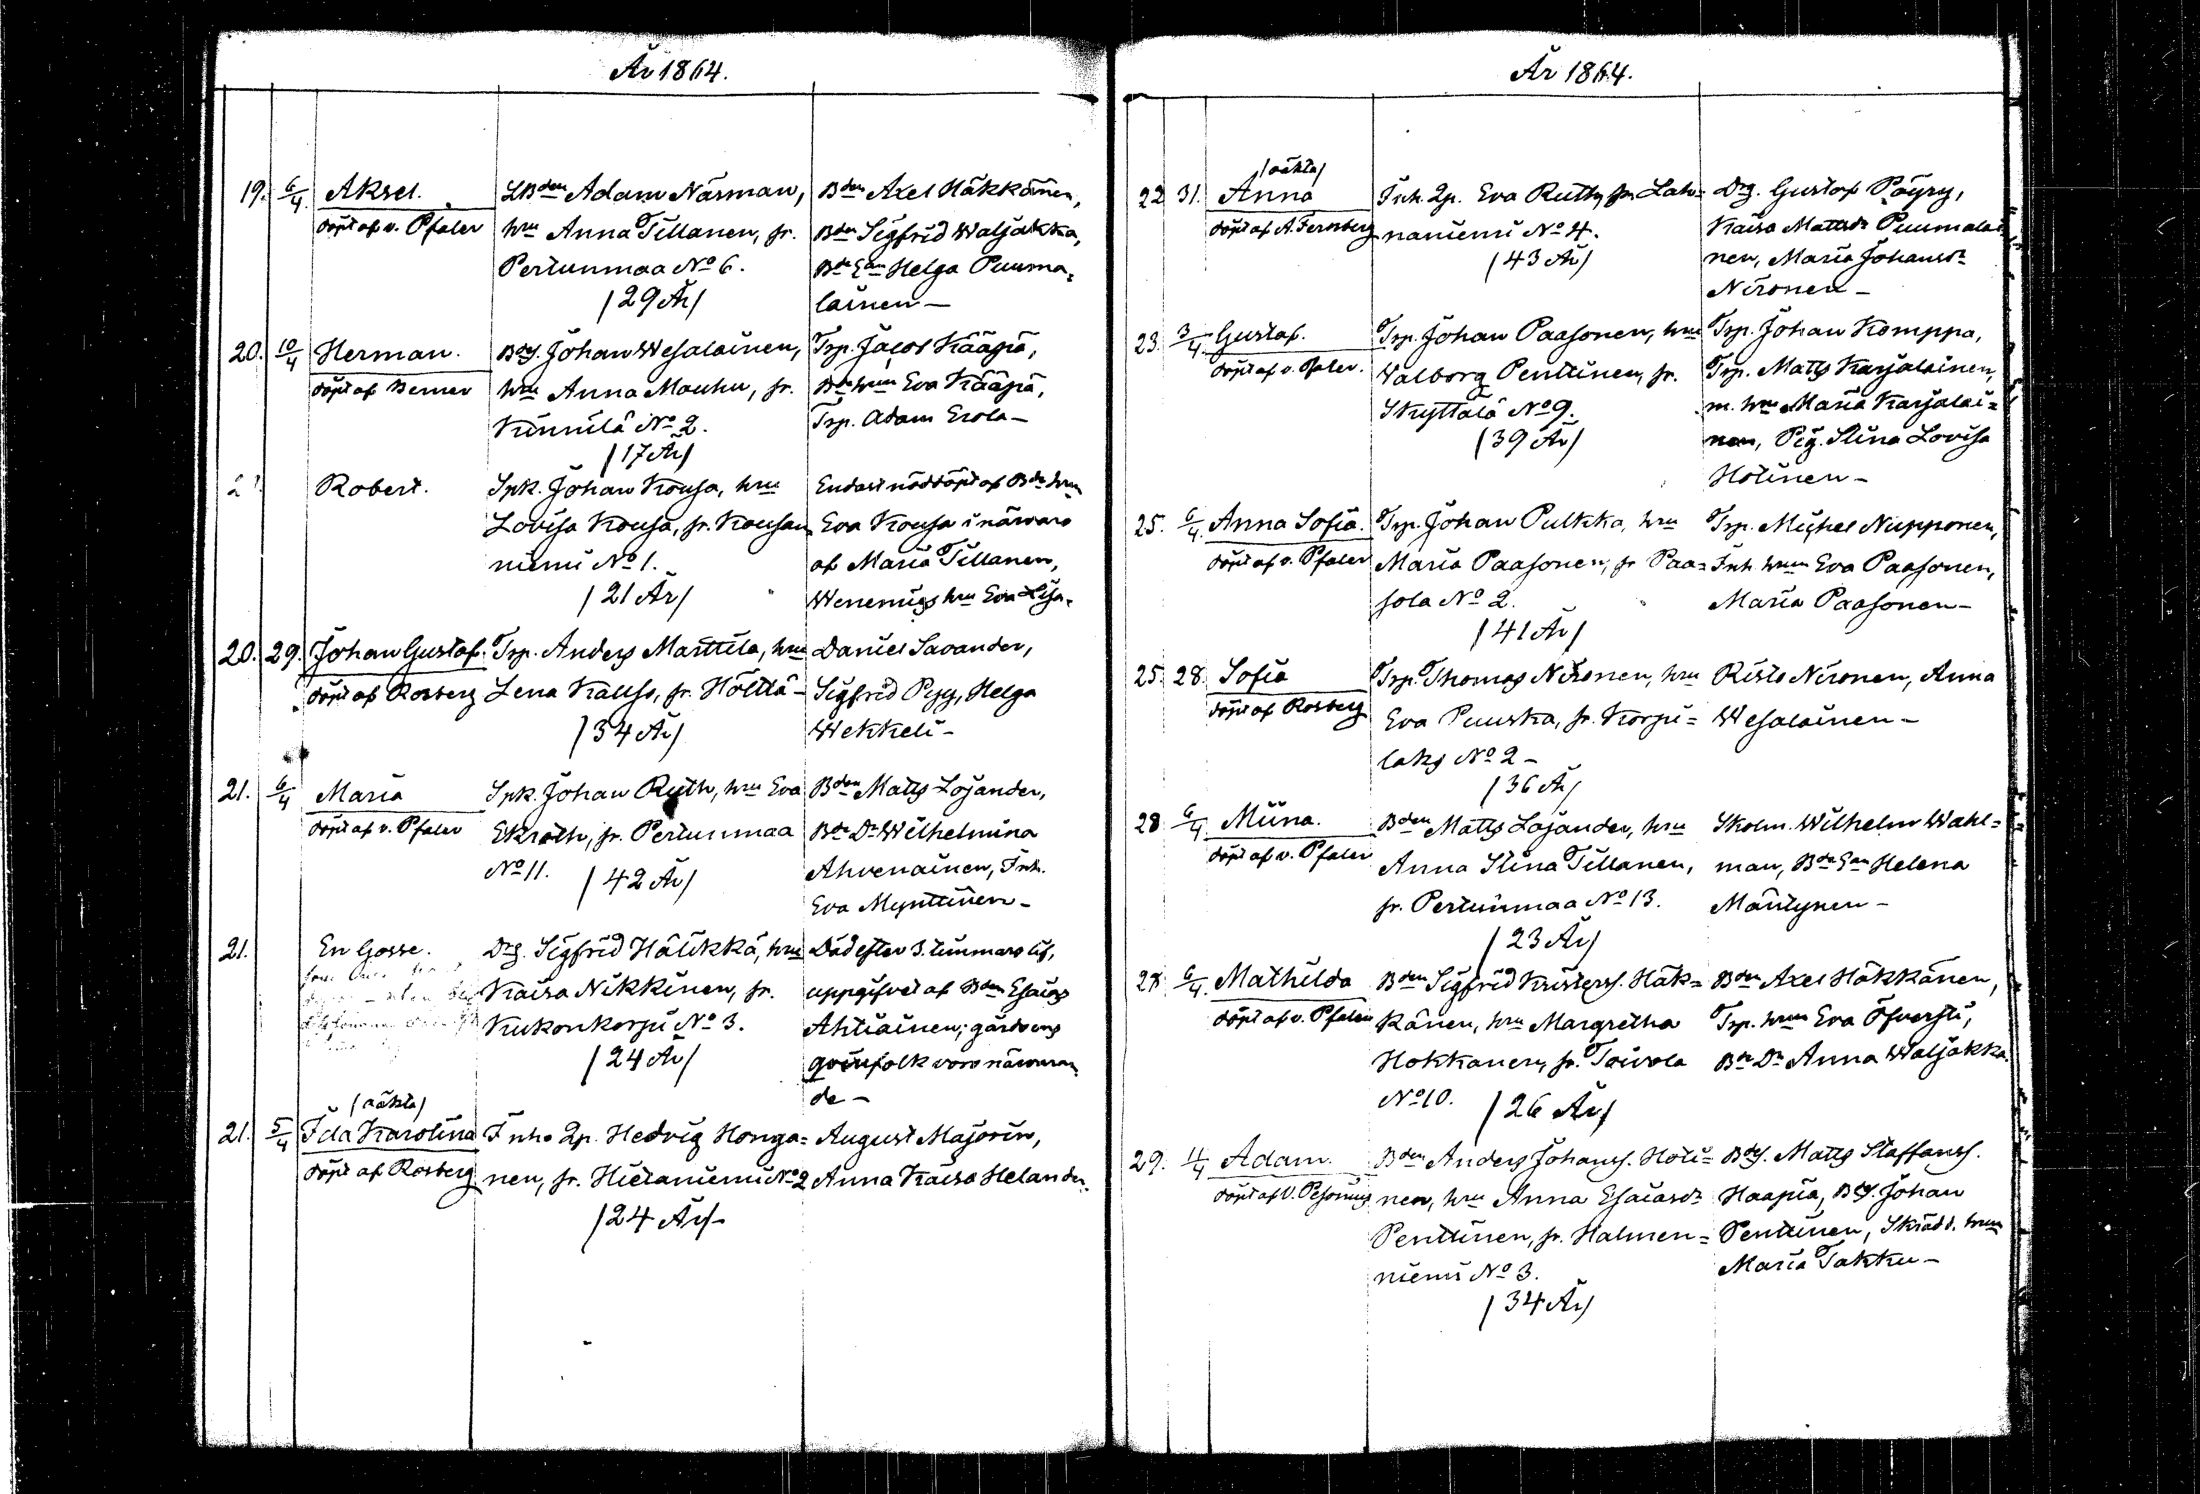 År 1864.
19. 6/4 Aksel.
döpt af v. Pfaler
LBden Adam Närman,
hru Anna Tillanen, fr.
Pertunmaa No 6.
/29 År/
Bden Axel Häkkänen,
Bden Sigfrid Waljakka,
Bde Ean Helga Puuma=
lainen—
20. 10/4 Herman.
döpt af Berner
Bdes. Johan Wesalainen,
hru Anna Mauhu, fr.
Kinnilä No 2.
/17 År/
Trp. Jacob Kääpiä,
Bde hrun Eva Kääpiä,
Trp. Adam Erola—
Robert.
Spk. Johan Kousa, hru
Lovisa Kousa, fr. Kousan
niemi No 1.
/21 År/
Endast nöddöpt af Bde hrun
Eva Kousa i närvaro
af Maria Tillanen,
Wenemies hru Eva Lisa.
20. 29. Johan Gustaf.
döpt af Rosberg
Trp. Anders Marttila, hru
Lena Kauso, fr. Hölttä—
/34 År/
Daniel Savander,
Sigfrid Pyy, Helga
Wekkeli—
21. 6/4 Maria
döpt af v. Pfaler
Spk. Johan Ruth, hru Eva
Ekroth, fr. Pertunmaa
No 11. /42 År/
Bden Matts Lojander,
Bde Dr Wilhelmina
Ahvenainen, Inh.
Eva Mynttinen—
21. En Gosse.
Drg. Sigfrid Hälikkä, hru
Kaisa Nikkinen, fr.
Kukonkorpi No 3.
/24 År/
Död efter 3 timmars lif,
uppgifvet af Bden Esaias
Ahtiainen; gårdens
qvinfolk voro närvaran
de—
21. 5/4 /oäkta/
Ida Karolina
döpt af Rosberg
Inh. Qp. Hedvig Honga=
nen, fr. Hietaniemi No 2
/24 År/—
August Majorin,
Anna Kaisa Helander.
År 1864.
22. 31. /oäkta/
Anna
döpt af A. Fernberg
Inh. Qp. Eva Ruth, fr. Lah=
naniemi No 4.
/43 År/
Drg. Gustaf Pöyry,
Kaisa Mattsdr Puumalai
nen, Maria Johansdr
Nironen—
23. 3/4 Gustaf.
döpt af v. Pfaler.
Trp. Johan Paasonen, hru
Walborg Penttinen, fr.
Skyttälä No 9.
/39 År/
Trp. Johan Komppa,
Trp. Matts Karjalainen,
m. hru Maria Karjalai=
nen, Pig. Stina Lovisa
Hotinen—
25. 6/4 Anna Sofia.
döpt af v. Pfaler
Trp. Johan Pulkka, hru
Maria Paasonen, fr Paa=
sola No 2.
/41 År/
Trp. Michel Nupponen,
Inh. hrun Eva Paasonen,
Maria Paasonen—
25. 28. Sofia
döpt af Rosberg
Trp. Thomas Nironen, hru
Eva Puuska, fr. Korpi=
laks No 2—
/36 År/
Risto Nironen, Anna
Wesalainen—
28 6/4 Miina.
döpt af v. Pfaler
Bden Matts Lojander, hru
Anna Stina Tillanen,
fr. Pertunmaa No 13.
/23 År/
Skolm. Wilhelm Wahl=
man, Bde Ean Helena
Mäntynen—
28. 6/4 Mathilda
döpt af v. Pfaler
Bden Sigfrid Kristers. Häk=
känen, hru Margretha
Hokkanen, fr. Toivola
No 10. /26 År/
Bden Axel Häkkänen,
Trp. hrun Eva Öfversti,
Bde Dr Anna Waljakka.
29. 11/4 Adam.
döpt af O. Pesonius
Bden Anders Johans. Hoti=
nen, hru Anna Esaiasdr
Penttinen, fr. Halmen=
niemi No 3.
/34 År/
Bdes. Matts Staffans.
Haapia, Bdes. Johan
Penttinen, Skrädd. hrun
Maria Takku—